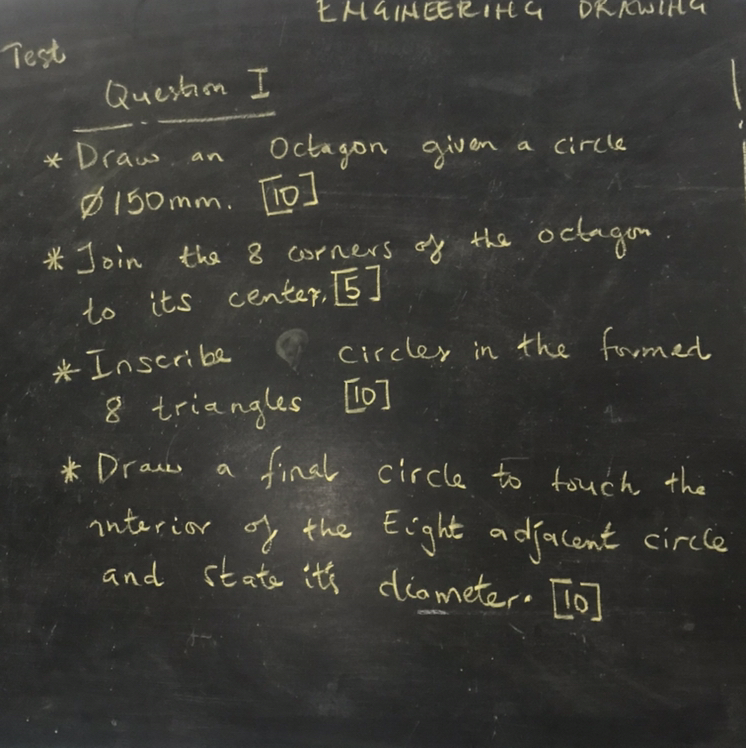 ENGINEERING DRAWING
Test
Question I
* Draw an Octagon given a circle
Ø150mm. [10]
* Join the 8 corners of the octagon.
to its center. [5]
* Inscribe circles in the formed
8 triangles [10]
* Draw a final circle to touch the
interior of the Eight adjacent circle
and state it's diameter. [10]